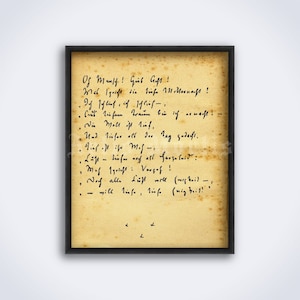 Oh Mensch! Gieb Acht!
Was spricht die tiefe Mitternacht?
Ich schlief, ich schlief —,
Aus tiefem Traum bin ich erwacht: —
Die Welt ist tief,
Und tiefer als der Tag gedacht.
Tief ist ihr Weh —,
Lust — tiefer noch als Herzeleid:
Weh spricht: Vergeh!
Doch alle Lust will Ewigkeit —
— will tiefe, tiefe Ewigkeit!